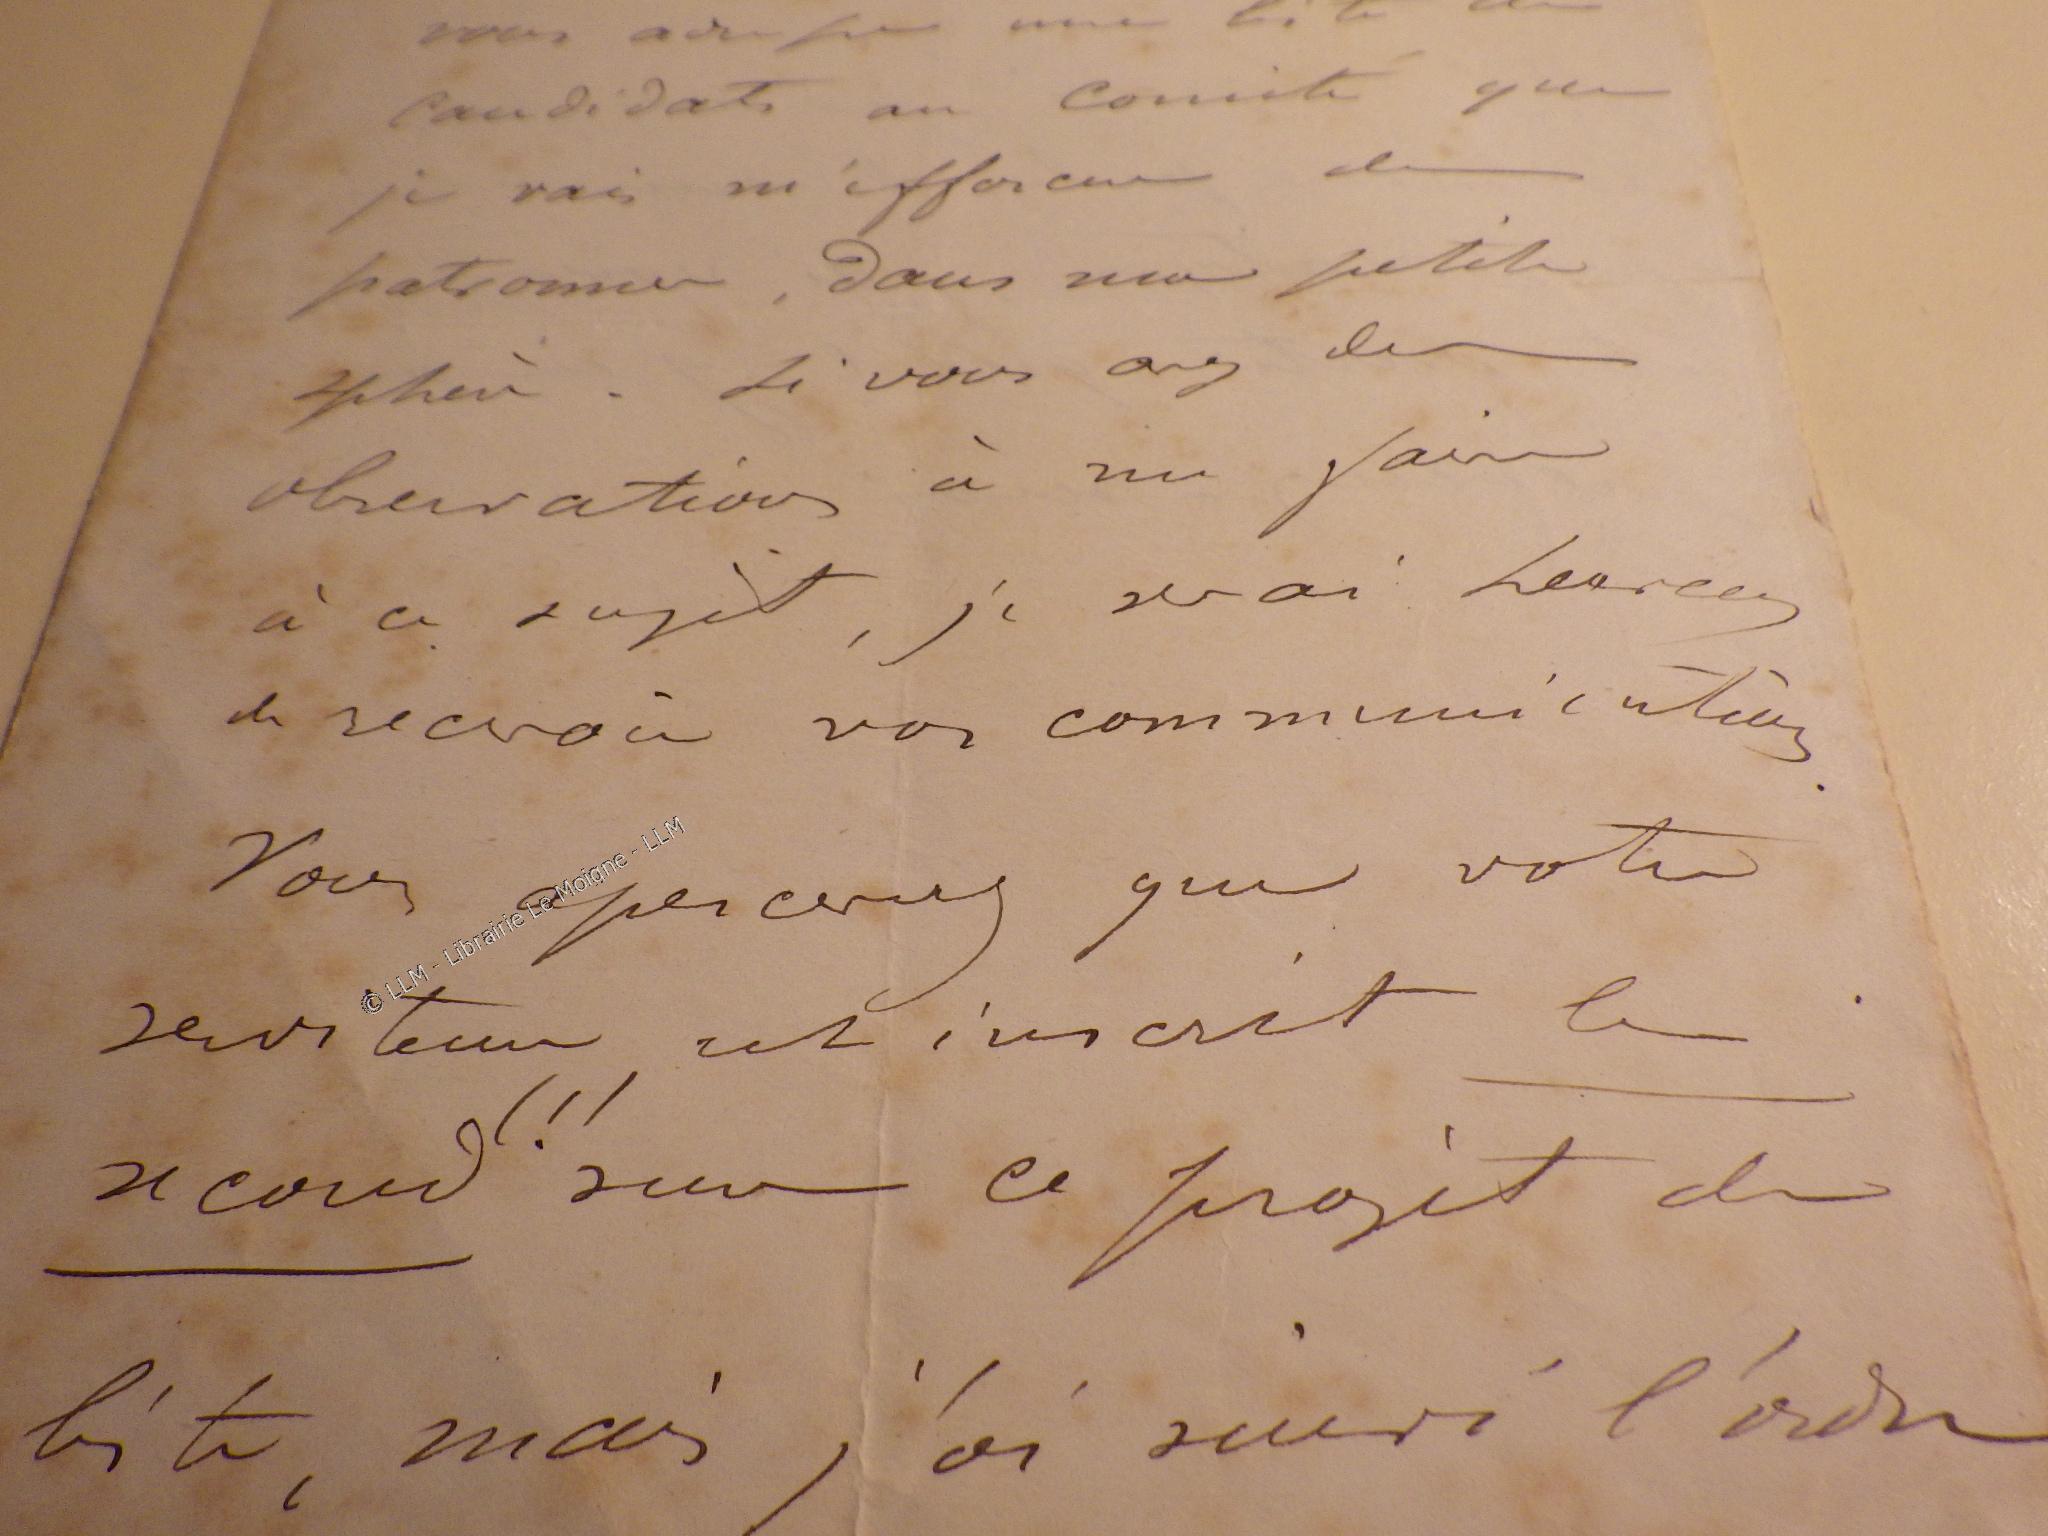 vous adresse une liste de
candidats au comité que
je vais m'efforcer de
patronner, dans ma petite
sphère. Si vous avez des
observations à me faire
à ce sujet, je serai heureux
de recevoir vos communications.
Vous apercevrez que votre
serviteur est inscrit le
second (!!) sur ce projet de
liste, mais j'ai suivi l'ordre
© LLM - Librairie Le Moigne - LLM